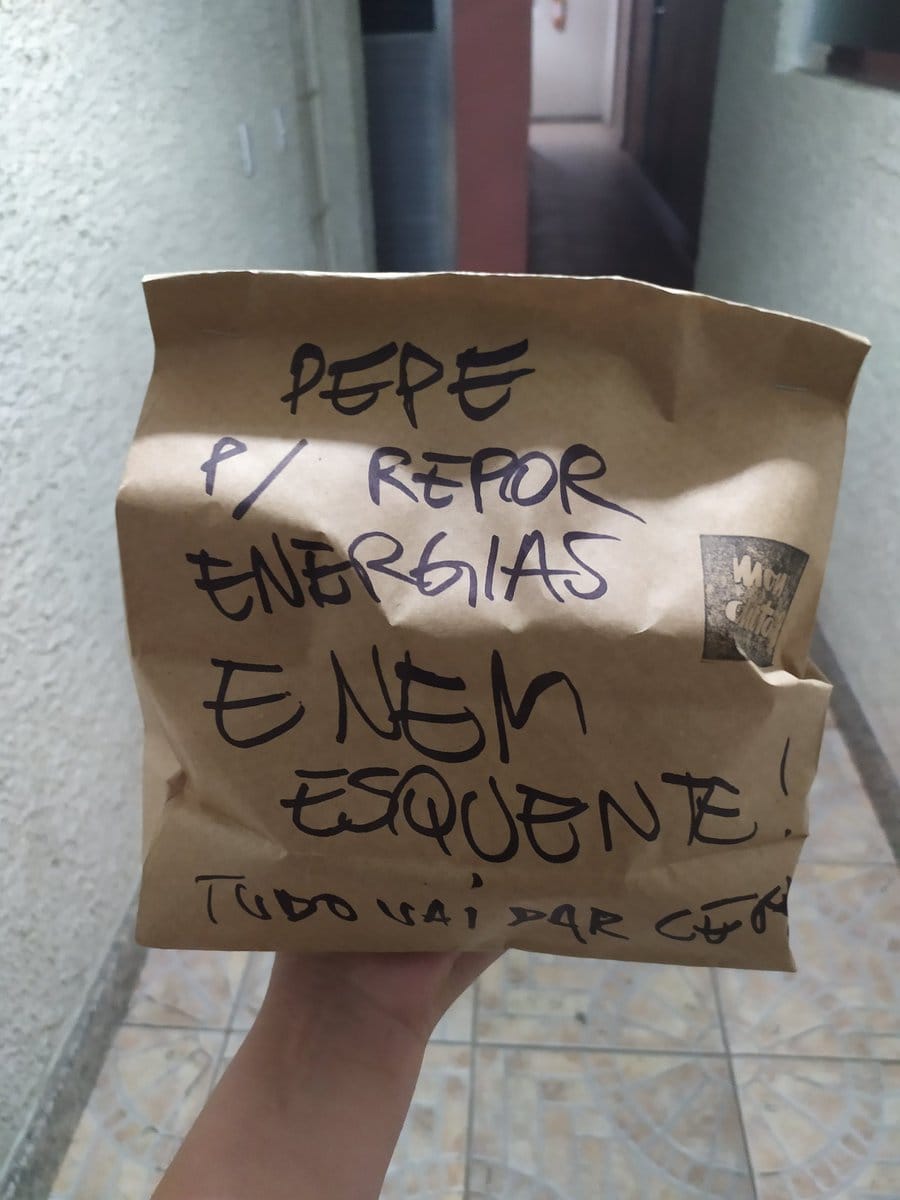 PEPE
P/ REPOR
ENERGIAS
ENEM
ESQUENTE!
TUDO VAI DAR